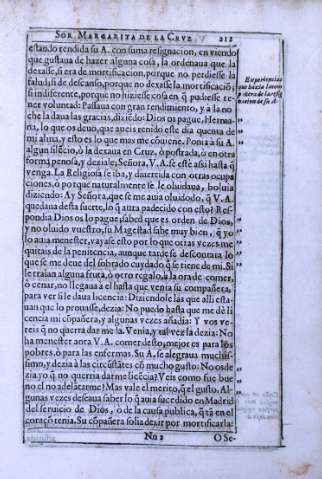 SOR MARGARITA DE LA CRVZ 212
estando rendida su A. con suma resignacion, en viendo
que gustaua de hazer alguna cosa, la ordenaua que la
dexasse, si era de mortificacion, porque no perdiesse la
salud, si de descanso, porque no dexasse la mortificació,
si indiferente, porque no hiziesse cosa en q̃ pudiesse te-
ner voluntad: Passaua con gran rendimiento, y a la no-
che la daua las gracias, diziédo: Dios os pague, Herma-
na, lo que os deuo, que aueis renido este dia quenta de
mi alma, y esto es lo que mas me cóuiene. Ponia a su A.
algun silécio, ò la dexaua en Cruz, ò postrada, ò en otra
forma penosa, y dezíale, Señora, V. A. se esté assi hasta q̃
venga. La Religiosa se iba, y diuertida con otras ocupa
ciones, ò por que naturalmente se le oluidaua, boluia
diziendo: Ay Señora, que se me auia oluidado, q̃ V. A.
quedaua desta suerte, lo q̃ aura padecido con esto! Res-
pondia Dios os lo pague, sabed que es orden de Dios,
y no oluido vuestro, su Magestad sabe muy bien, q̃ yo
lo auia menester, vaya esto por lo que otras vezes me
quitais de la penitencia, aunque tarde se descontara lo
que se me deue del sobrado cuydado q̃ se tiene de mi. Si
le traian alguna fruta, ò otro regalo, à la ora de comer,
ò cenar, no llegaua a el hasta que venia su compañera,
para ver si le daua licencia: Diziendole las que alli esta-
uan que lo prouasse, dezia: No puedo hasta que me dè li
cencia mi compañera, y algunas vezes añadia: Y vos ve-
reis q̃ no querra darmela. Venia, y tal vez la dezia: No
ha menester aora V. A. comer desto, mejor es para los
pobres, ò para las enfermas. Su A. se alegraua muchis-
simo, y dezia a las circústátes có mucho gusto: No os de
zia yo q̃ no querria darme licécia? Veis como fue bue
no el no adelátarme? Mas vale el merito, q̃ el gusto. Al
gunas vezes deseaua saber lo q̃ auia sucedido en Madrid
del seruicio de Dios, ò de la causa publica, q̃ tà en el
coraçó tenia. Su cópañera solia dezir por mortificarla:
Nn 2 O Se-
Experiencias
que hazia